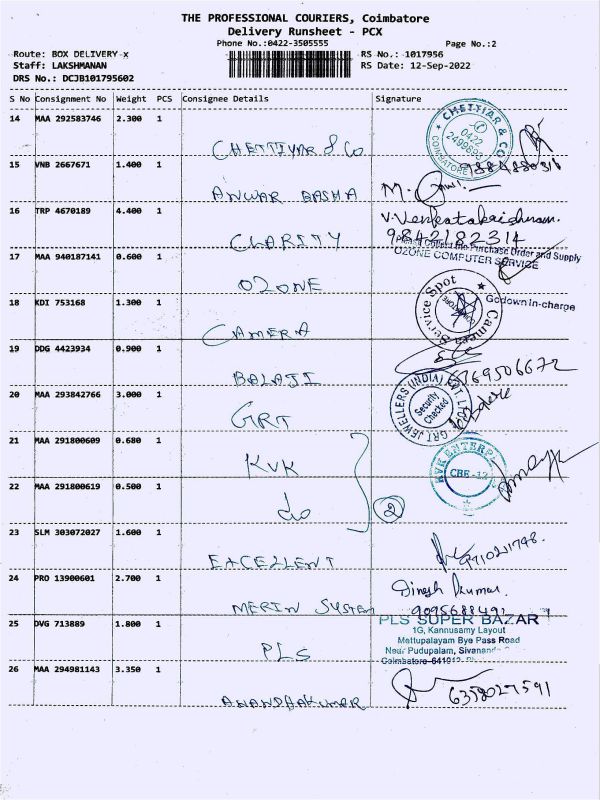 THE PROFESSIONAL COURIERS, Coimbatore
Delivery Runsheet - PCX
Phone No.:0422-3505555
Page No.:2
Route: BOX DELIVERY-x
RS No.: 1017956
Staff: LAKSHMANAN
RS Date: 12-Sep-2022
DRS No.: DCJB101795602
S No Consignment No Weight PCS Consignee Details Signature
14 MAA 292583746 2.300 1
CHETTIYAR & Co
CHETTIYAR & CO
COIMBATORE
0422
15 VNB 2667671 1.400 1
ANWAR BASHA
16 TRP 4670189 4.400 1
CLARITY
V.Venkatakrishnan.
9842182314
17 MAA 940187141 0.600 1
OZONE
Please Collect the Purchase Order and Supply
OZONE COMPUTER SERVICE
18 KDI 753168 1.300 1
CAMERA
Camera Service Spot
COIMBATORE
Godown In-charge
19 DDG 4423934 0.900 1
BALAJI
20 MAA 293842766 3.000 1
GRT
GRT JEWELLERS (INDIA) PVT. LTD
Security
Checked
21 MAA 291800609 0.680 1
KVK
KVK ENTERP
CBE-12
22 MAA 291800619 0.500 1
do
2
23 SLM 303072027 1.600 1
EXCELLENT
24 PRO 13900601 2.700 1
MERIN SYSTEM
Dinesh Kumar
25 DVG 713889 1.800 1
PLS
PLS SUPER BAZAR
1G, Kannusamy Layout
Mettupalayam Bye Pass Road
Near Pudupalam, Sivanand
26 MAA 294981143 3.350 1
ANANDHAKUMAR
6358027591